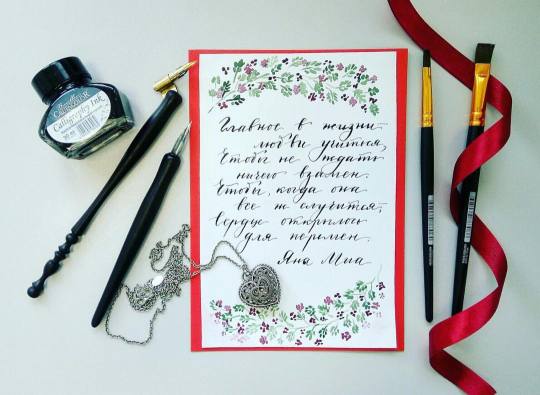 Calligraphy Ink
Главное в жизни –
любви учиться,
Чтобы не ждать
ничего взамен.
Чтобы, когда она
все ж случится,
Сердце открылось
для перемен.
Яна Миа